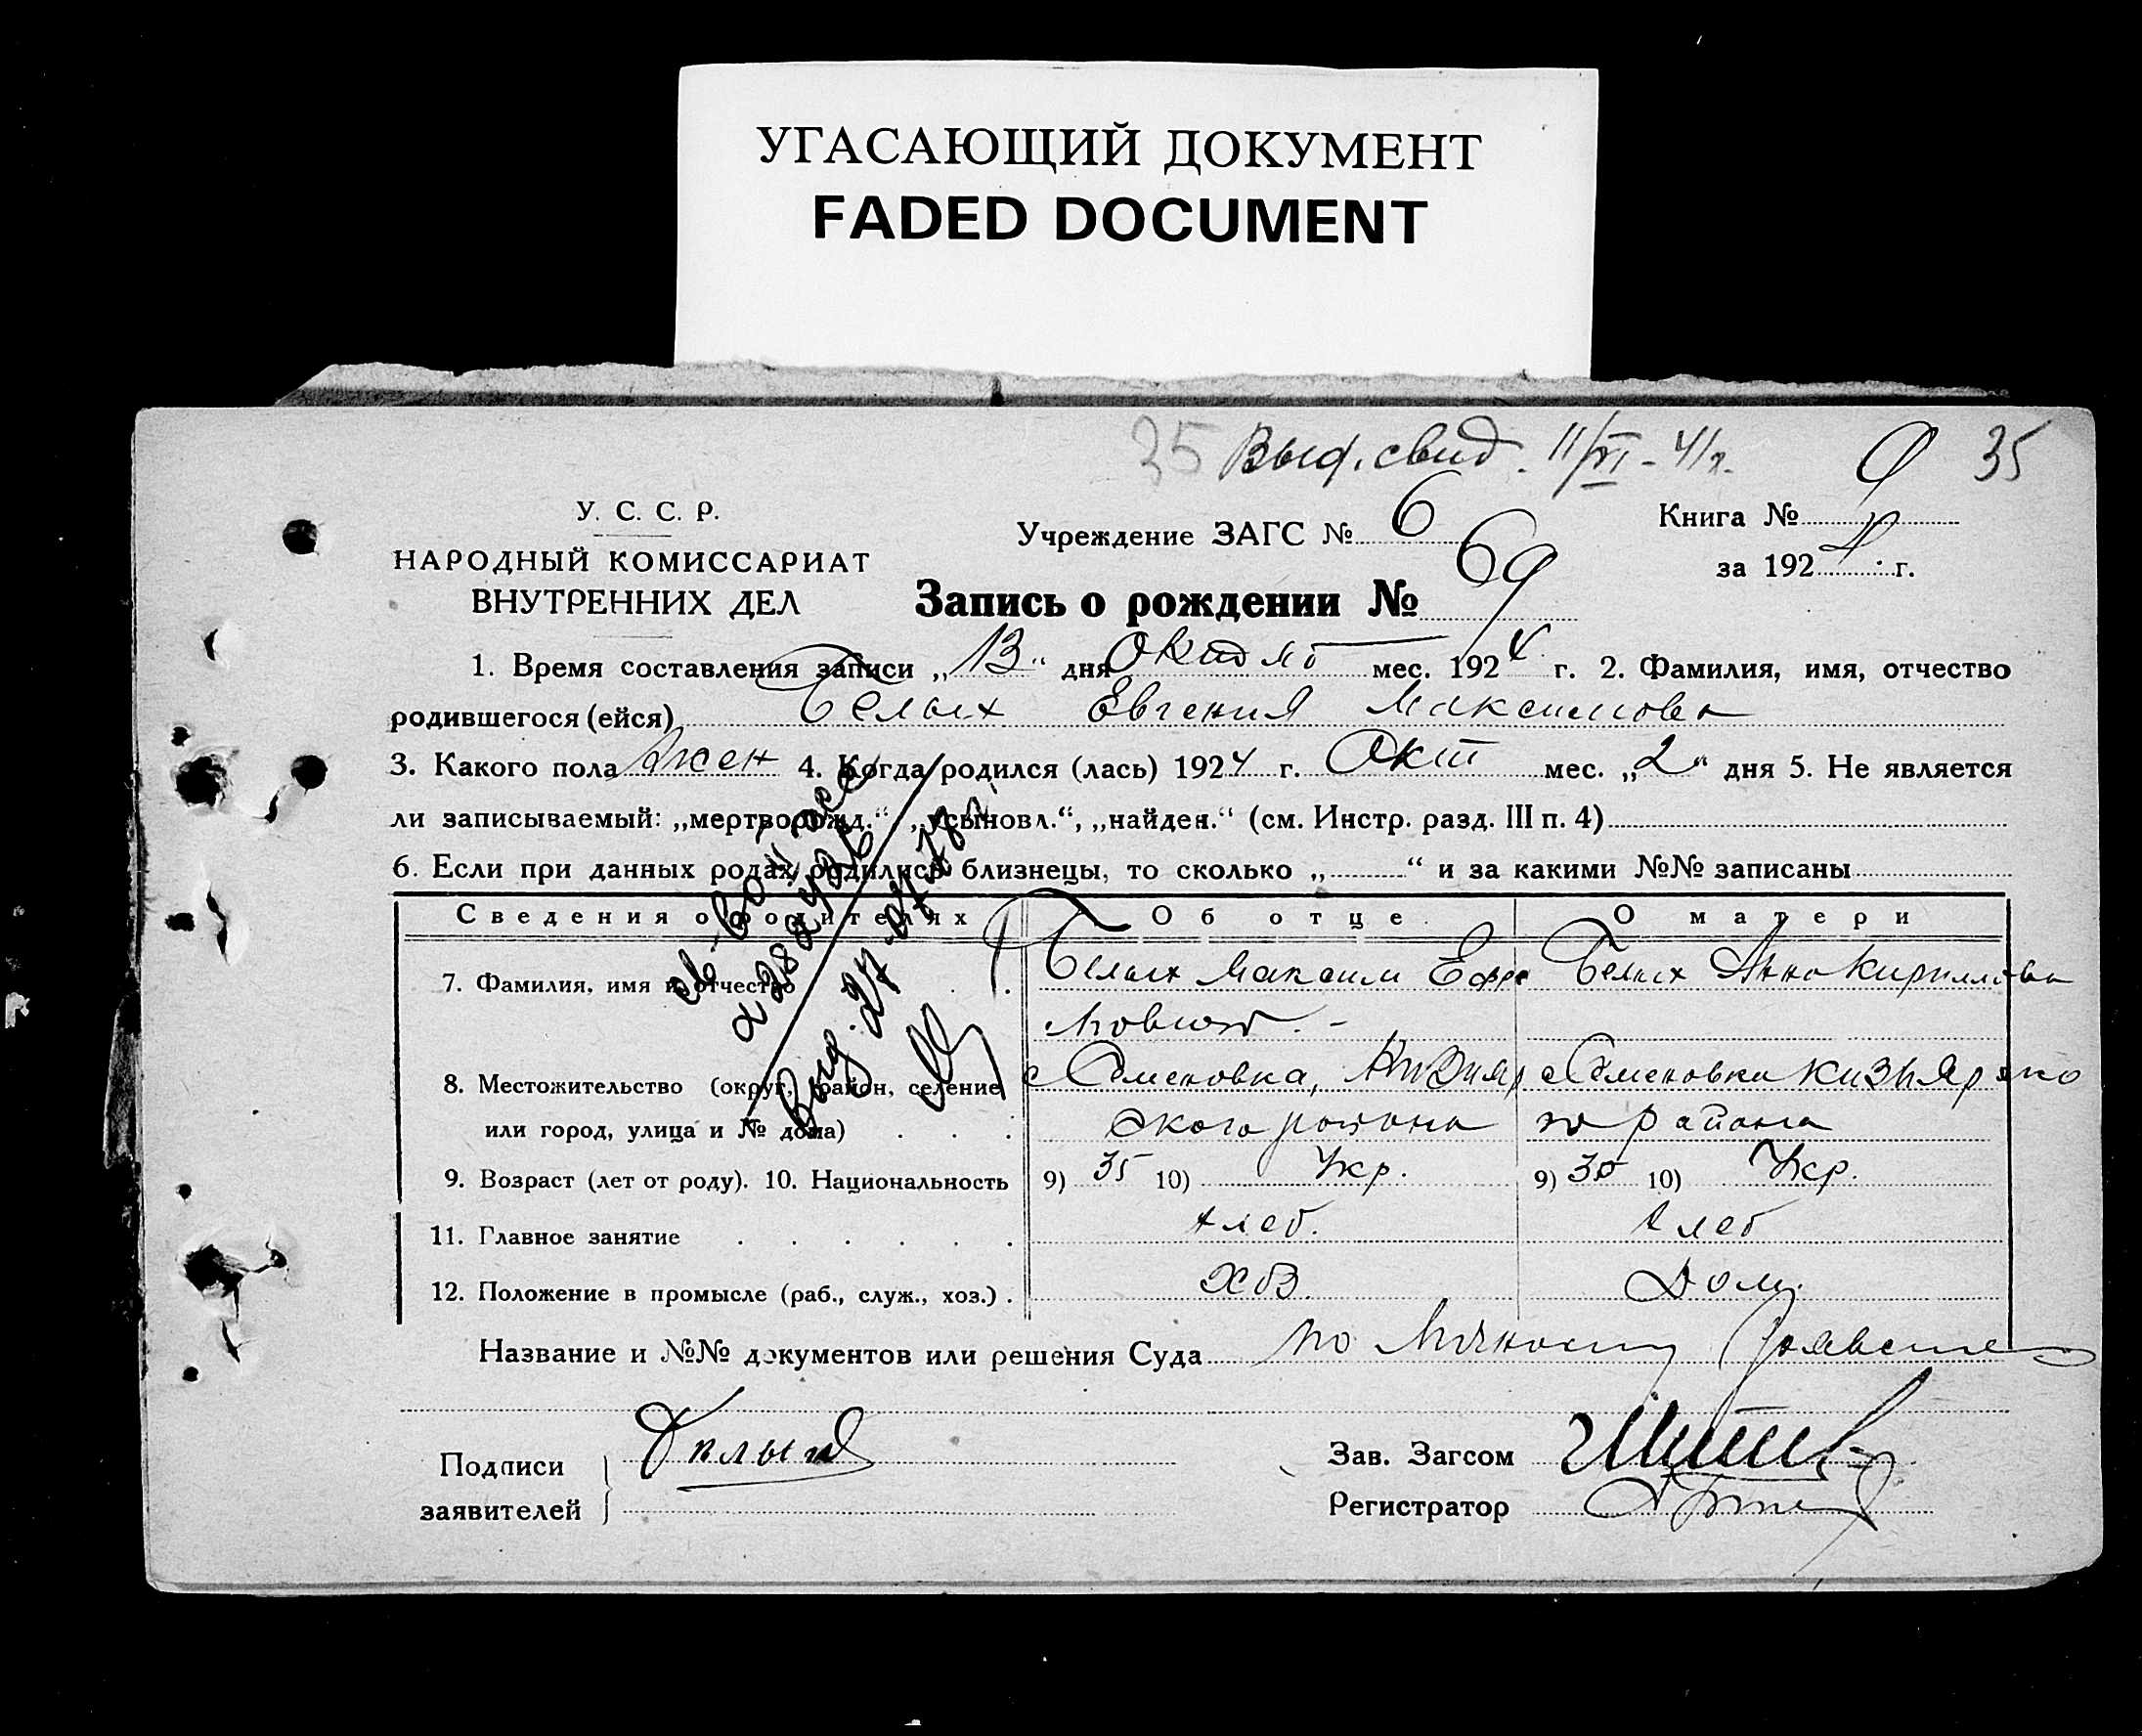 УГАСАЮЩИЙ ДОКУМЕНТ
FADED DOCUMENT
35 Выд. свид. 11/VI - 41 г. 35
У. С. С. Р.
НАРОДНЫЙ КОМИССАРИАТ
ВНУТРЕННИХ ДЕЛ
Учреждение ЗАГС № 6
Книга №
за 1924 г.
Запись о рождении № 69
1. Время составления записи „13“ дня Октяб мес. 1924 г. 2. Фамилия, имя, отчество
родившегося (ейся) Белых Евгения Максимовна
3. Какого пола жен 4. Когда родился (лась) 1924 г. Окт мес. „2“ дня 5. Не является
ли записываемый: „мертворожд.“ „усыновл.“, „найден.“ (см. Инстр. разд. III п. 4)
6. Если при данных родах родились близнецы, то сколько „ “ и за какими №№ записаны
Сведения о родителях Об отце. О матери
7. Фамилия, имя и отчество Белых Максим Белых Анна Кирилловна
8. Местожительство (округ, район, селение с Семеновка, с Семеновка Кизыярско
или город, улица и № дома) ского района го района
9. Возраст (лет от роду). 10. Национальность 9) 35 10) Укр. 9) 35 10) Укр.
11. Главное занятие хлеб. хлеб
12. Положение в промысле (раб., служ., хоз.) . Хоз. Дом.
Название и №№ документов или решения Суда по личному
Подписи
заявителей
Белых
Зав. Загсом
Регистратор
св-во
Выд. 27